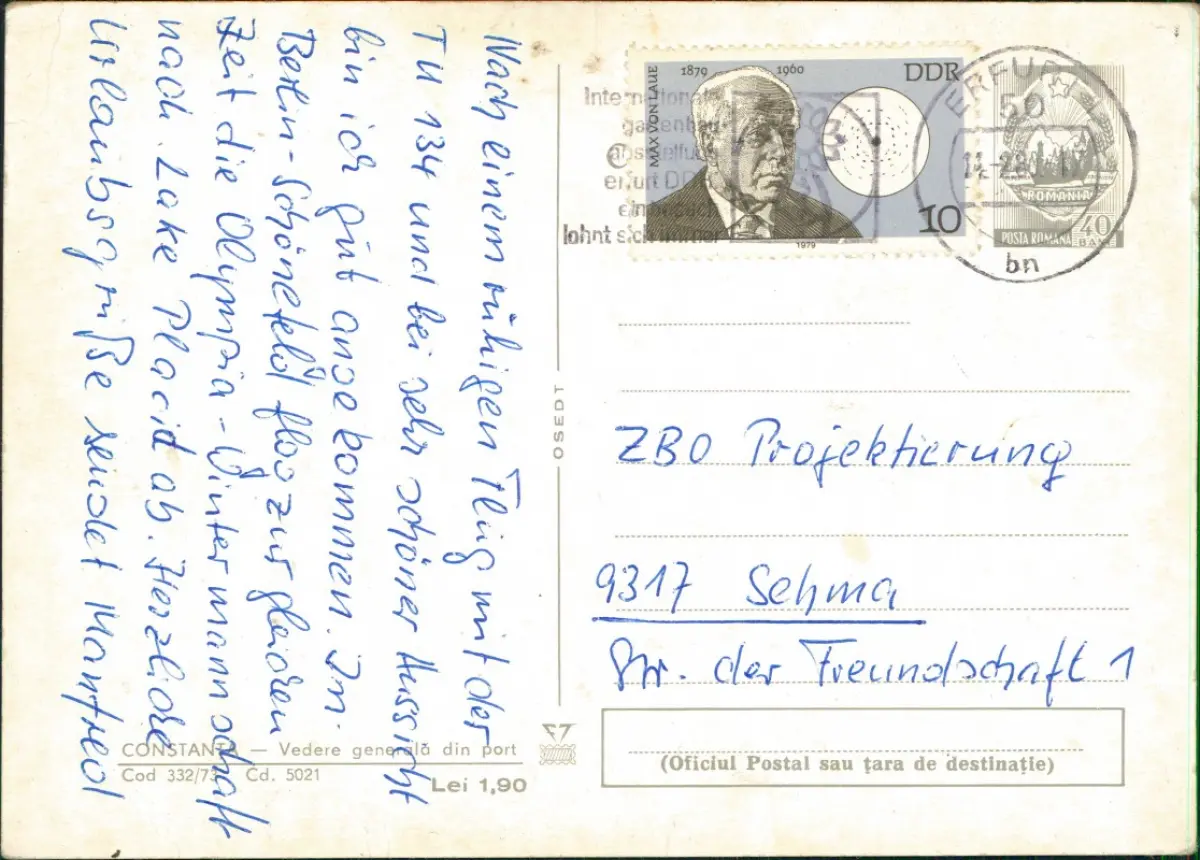 Nach einem ruhigen Flug mit der
TU 134 und bei sehr schöner Aussicht
bin ich gut angekommen. Im
Berlin-Schönefeld flog zur gleichen
Zeit die Olympia-Wintermannschaft
nach Lake Placid ab. Herzliche
Urlaubsgrüße sendet Manfred
CONSTANȚA — Vedere generală din port
Cod 332/73 Cd. 5021
Lei 1,90
OSEDT
MAX VON LAUE
1879 1960
DDR
10
1979
Internationale
gartenbau
ausstellung
erfurt DDR
ein besuch
lohnt sich immer
ERFURT
50
bn
ROMANIA
POSTA ROMANA
40
BANI
ZBO Projektierung
9317 Sehma
Str. der Freundschaft 1
(Oficiul Postal sau țara de destinație)